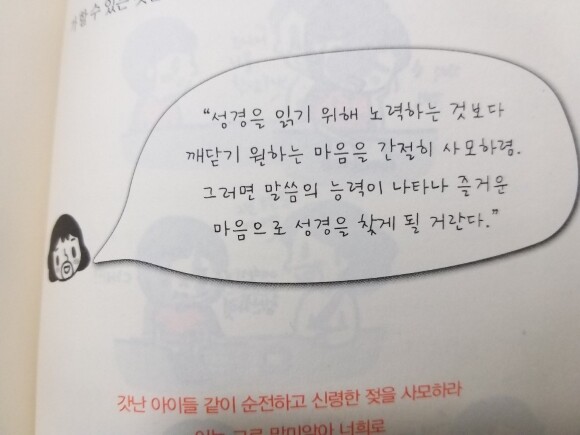 할 수 있는
"성경을 읽기 위해 노력하는 것보다
깨닫기 원하는 마음을 간절히 사모하렴.
그러면 말씀의 능력이 나타나 즐거운
마음으로 성경을 찾게 될 거란다."
갓난 아이들 같이 순전하고 신령한 젖을 사모하라
이는 그로 말미암아 너희로